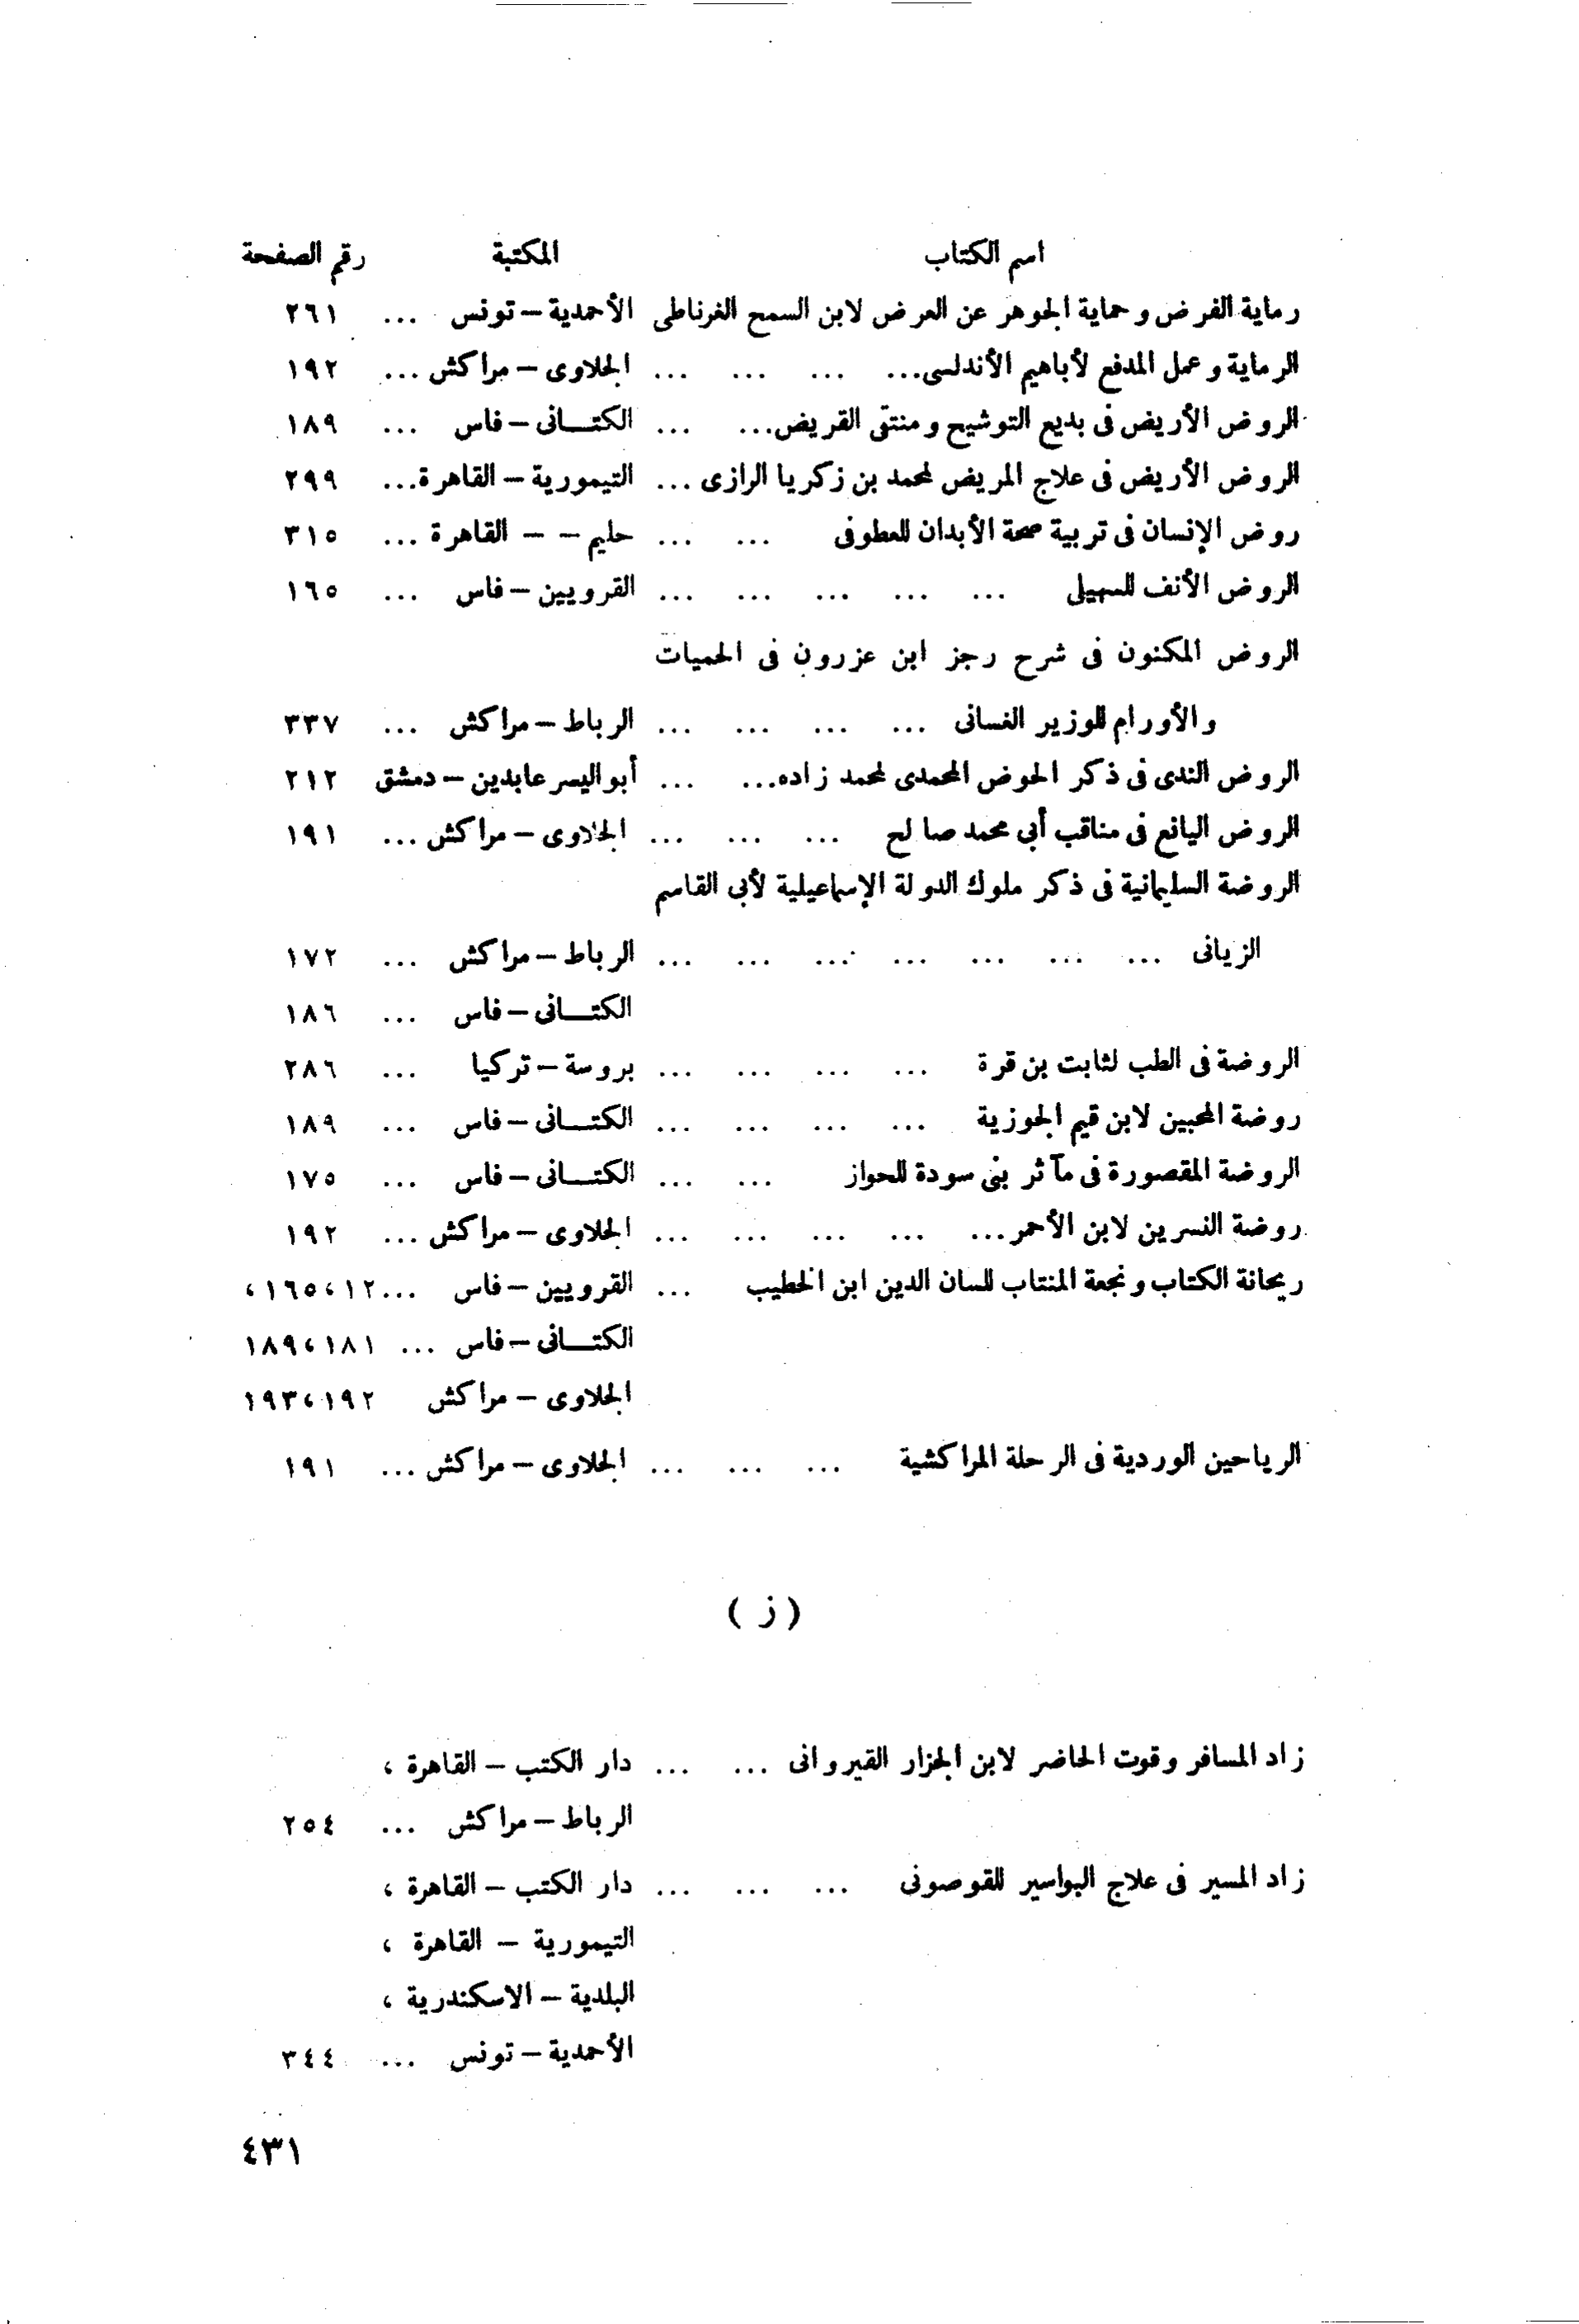 اسم الكتاب المكتبة رقم الصفحة
رماية الفرض وحماية الجوهر عن العرض لابن السمح الغرناطى الأحمدية – تونس ... ٢٦١
الرماية وعمل المدفع لأباهيم الأندلسى... ... ... ... الجلاوى – مراكش ... ١٩٢
الروض الأريض فى بديع التوشيح ومنتقى القريض... ... الكتــانى – فاس ... ١٨٩
الروض الأريض فى علاج المريض لمحمد بن زكريا الرازى ... التيمورية – القاهرة... ٢٩٩
روض الإنسان فى تربية صحة الأبدان للعطوفى ... ... حليم – – القاهرة ... ٣١٥
الروض الأنف للسهيلى ... ... ... ... ... القرويين – فاس ... ١٦٥
الروض المكنون فى شرح رجز ابن عزرون فى الحميات
والأورام للوزير الغسانى ... ... ... ... الرباط – مراكش ... ٣٣٧
الروض الندى فى ذكر الحوض المحمدى لمحمد زاده... ... أبو اليسر عابدين – دمشق ٢١٢
الروض اليانع فى مناقب أبى محمد صالح ... ... ... الجلاوى – مراكش ... ١٩١
الروضة السليمانية فى ذكر ملوك الدولة الإسماعيلية لأبى القاسم
الزيانى ... ... ... ... ... ... ... الرباط – مراكش ... ١٧٢
الكتــانى – فاس ... ١٨٦
الروضة فى الطب لثابت بن قرة ... ... ... ... بروسة – تركيا ... ٢٨٦
روضة المحبين لابن قيم الجوزية ... ... ... ... الكتــانى – فاس ... ١٨٩
الروضة المقصورة فى مآثر بنى سودة للحواز ... ... الكتــانى – فاس ... ١٧٥
روضة النسرين لابن الأحمر... ... ... ... ... الجلاوى – مراكش ... ١٩٢
ريحانة الكتاب ونجعة المنتاب للسان الدين ابن الخطيب ... القرويين – فاس ...١٢،١٦٥،
الكتــانى – فاس ... ١٨١،١٨٩
الجلاوى – مراكش ١٩٢،١٩٣
الرياحين الوردية فى الرحلة المراكشية ... ... ... الجلاوى – مراكش ... ١٩١
( ز )
زاد المسافر وقوت الحاضر لابن الجزار القيروانى ... ... دار الكتب – القاهرة ،
الرباط – مراكش ... ٢٥٤
زاد المسير فى علاج البواسير للقوصونى ... ... ... دار الكتب – القاهرة ،
التيمورية – القاهرة ،
البلدية – الاسكندرية ،
الأحمدية – تونس ... ٣٤٤
٤٣١